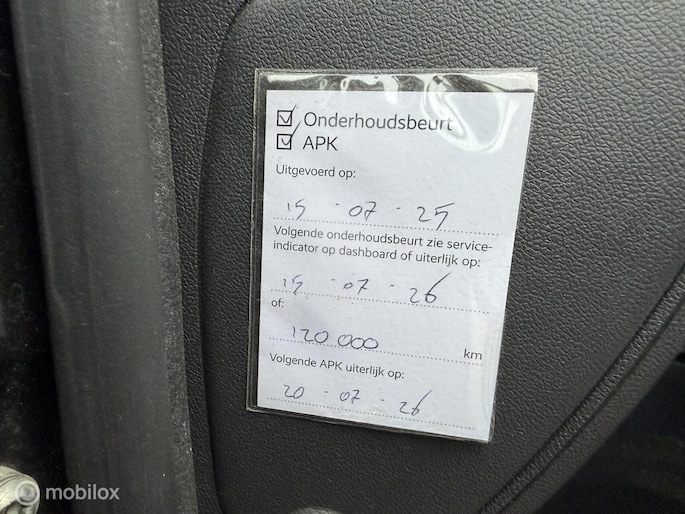 Onderhoudsbeurt
APK
Uitgevoerd op:
15 - 07 - 25
Volgende onderhoudsbeurt zie service-
indicator op dashboard of uiterlijk op:
15 - 07 - 26
of:
120 000 km
Volgende APK uiterlijk op:
20 - 07 - 26
mobilox